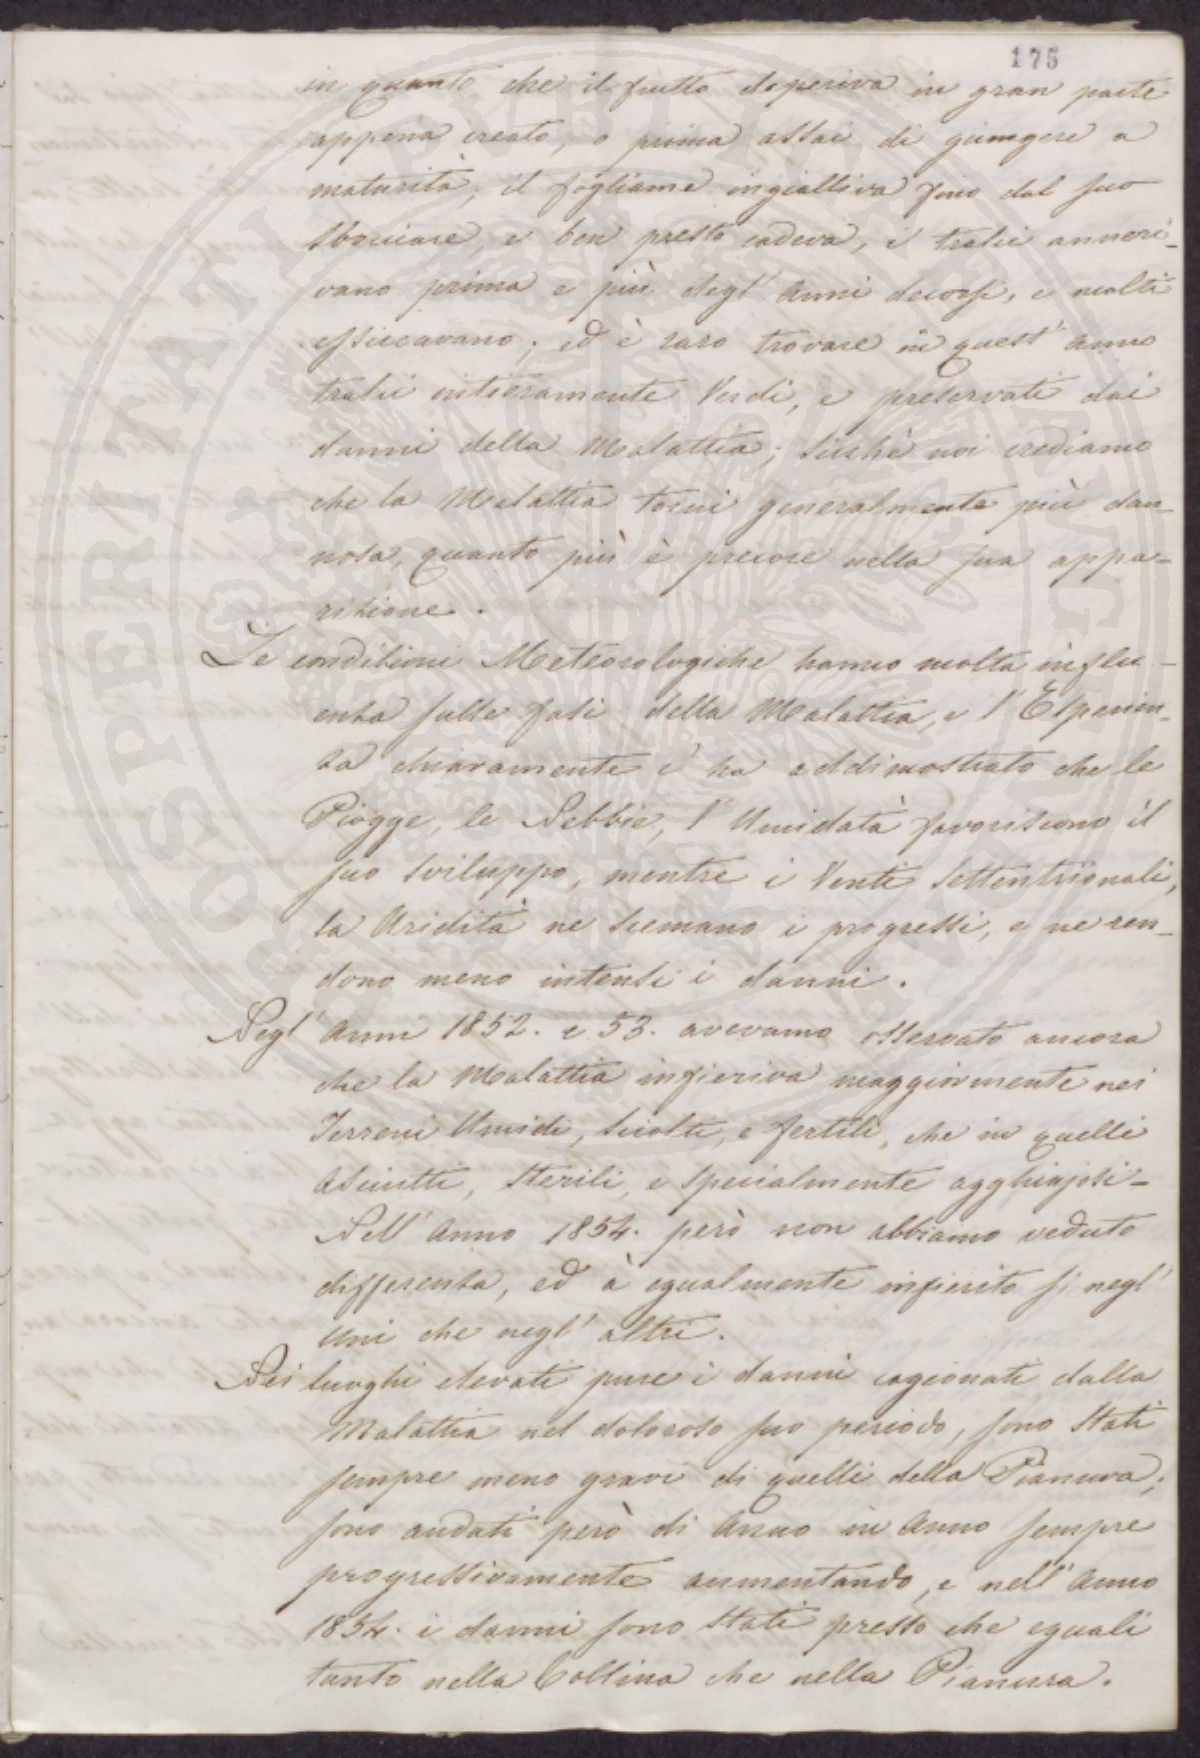 175
in quanto che il frutto deperiva in gran parte
appena creato, o prima assai di giungere a
maturità, il fogliame ingialliva fino dal suo
sbocciare, e ben presto cadeva, i tralci anneri-
vano prima e più degl' Anni decorsi, e molti
essiccavano; ed è raro trovare in quest' Anno
tralci intieramente Verdi, e preservati dai
danni della Malattia; sicché noi crediamo
che la Malattia torni generalmente più dan-
nosa, quanto più è precoce nella sua appa-
rizione.
Le condizioni Meteorologiche hanno molta influ-
enza sulle fasi della Malattia, e l'Esperien-
za chiaramente ci ha addimostrato che le
Piogge, le Nebbie, l'Umidatà favoriscono il
suo sviluppo, mentre i Venti Settentrionali,
la Aridità ne scemano i progressi, e ne ren-
dono meno intensi i danni.
Negl' Anni 1852. e 53. avevamo osservato ancora
che la Malattia infieriva maggiormente nei
Terreni Umidi, Sciolti, e fertili, che in quelli
Asciutti, Sterili, e specialmente agghiajosi-
Nell' Anno 1854. però non abbiamo veduto
differenza, ed à egualmente infierito sì negl'
uni che negl' altri.
Nei luoghi elevati pure i danni cagionati dalla
Malattia nel doloroso suo periodo, sono stati
sempre meno gravi di quelli della Pianura;
sono andati però di Anno in Anno sempre
progressivamente aumentando, e nell' Anno
1854. i danni sono stati presso che eguali
tanto nella Collina che nella Pianura.
PROSPERITATI PUBLICAE AUGENDAE